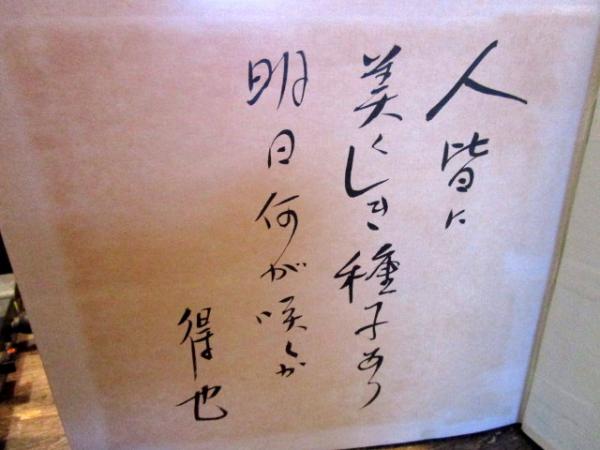 人皆に
美くしき種子あり
明日何が咲くか
得也